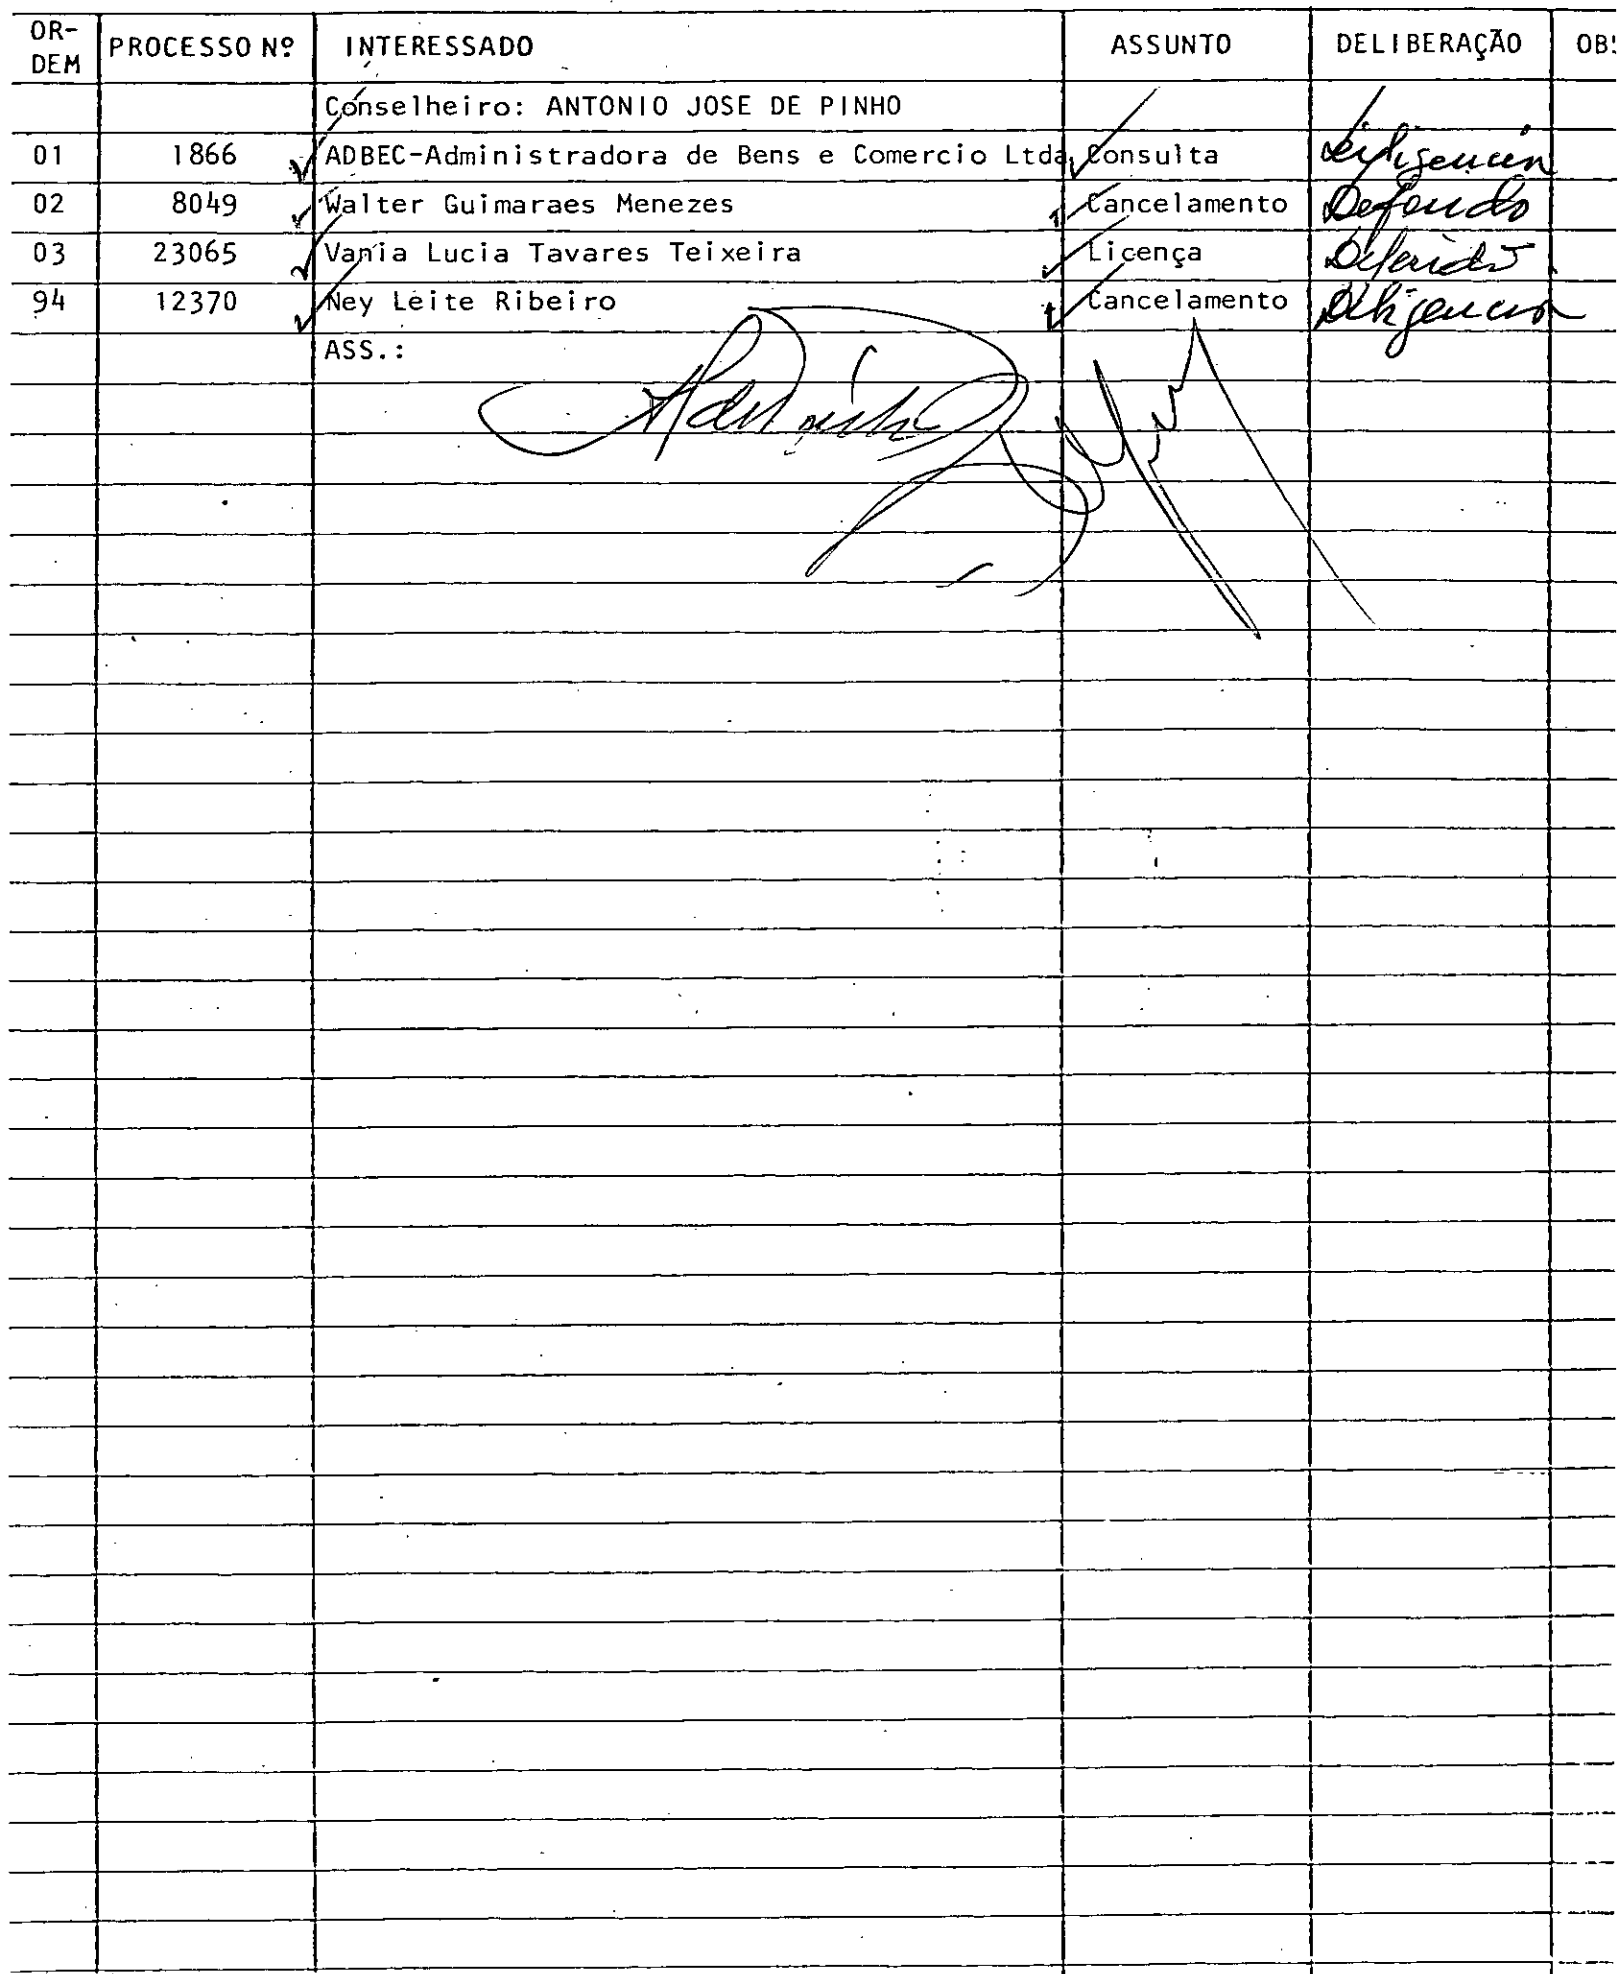 OR-DEM PROCESSO Nº INTERESSADO ASSUNTO DELIBERAÇÃO OBS
Conselheiro: ANTONIO JOSE DE PINHO
01 1866 ADBEC-Administradora de Bens e Comercio Ltda Consulta Diligencia
02 8049 Walter Guimaraes Menezes Cancelamento Deferido
03 23065 Vania Lucia Tavares Teixeira Licença Deferido
94 12370 Ney Leite Ribeiro Cancelamento Diligencia
ASS.: